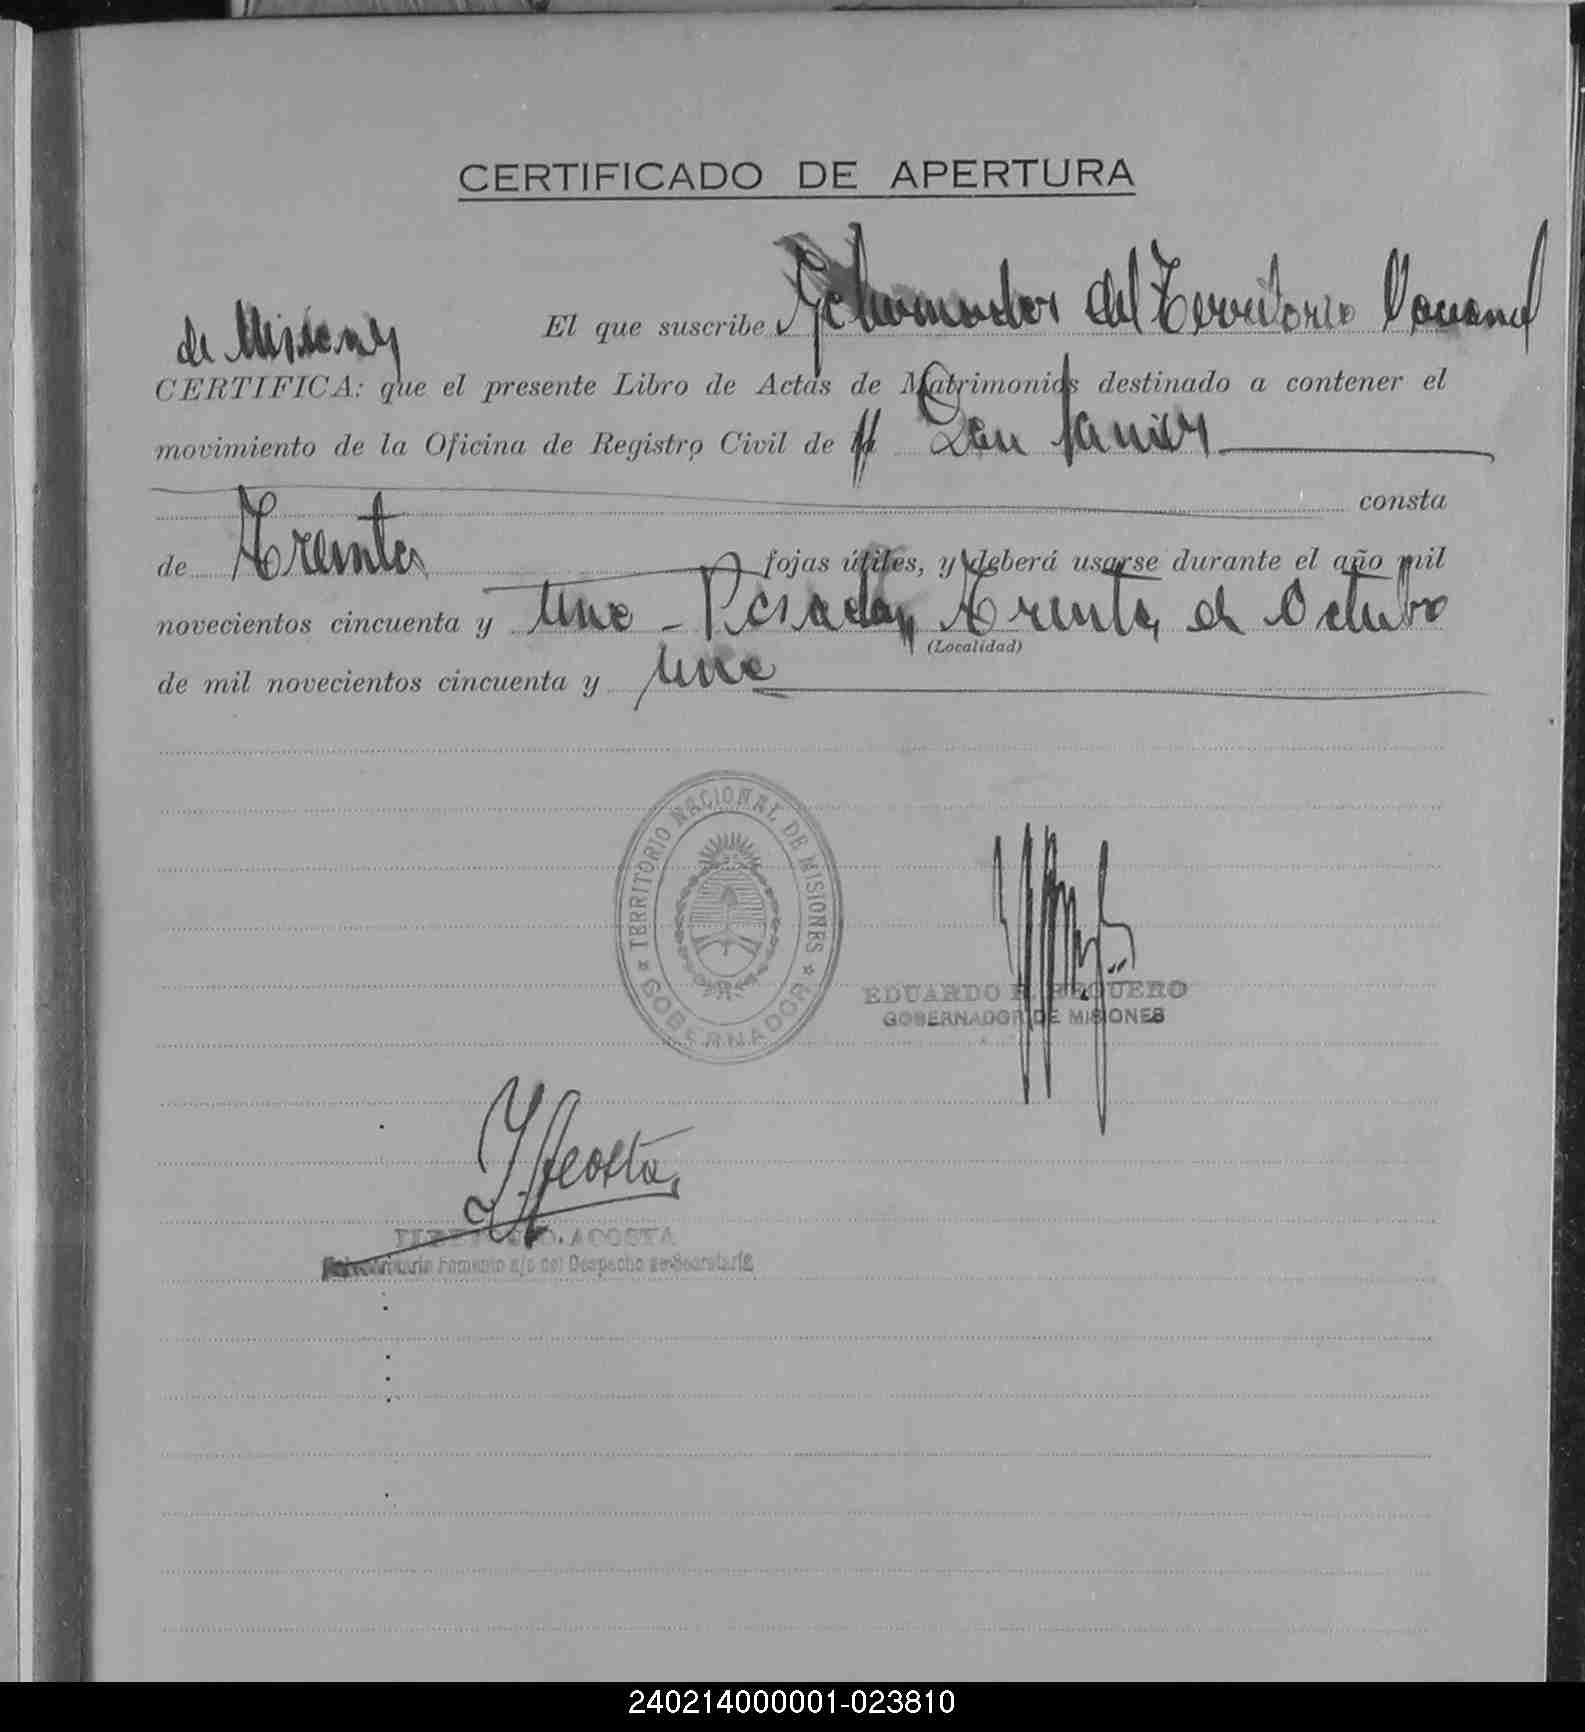 CERTIFICADO DE APERTURA
El que suscribe Gobernador del Territorio Nacional
de Misiones
CERTIFICA: que el presente Libro de Actas de Matrimonios destinado a contener el
movimiento de la Oficina de Registro Civil de San Javier
consta
de Treinta fojas útiles, y deberá usarse durante el año mil
novecientos cincuenta y uno - Posadas, Treinta de Octubre
(Localidad)
de mil novecientos cincuenta y uno
TERRITORIO NACIONAL DE MISIONES
GOBERNADOR
EDUARDO REGUERO
GOBERNADOR DE MISIONES
Acosta
D. ACOSTA
Fomento a/c del Despacho de Secretaría
240214000001-023810